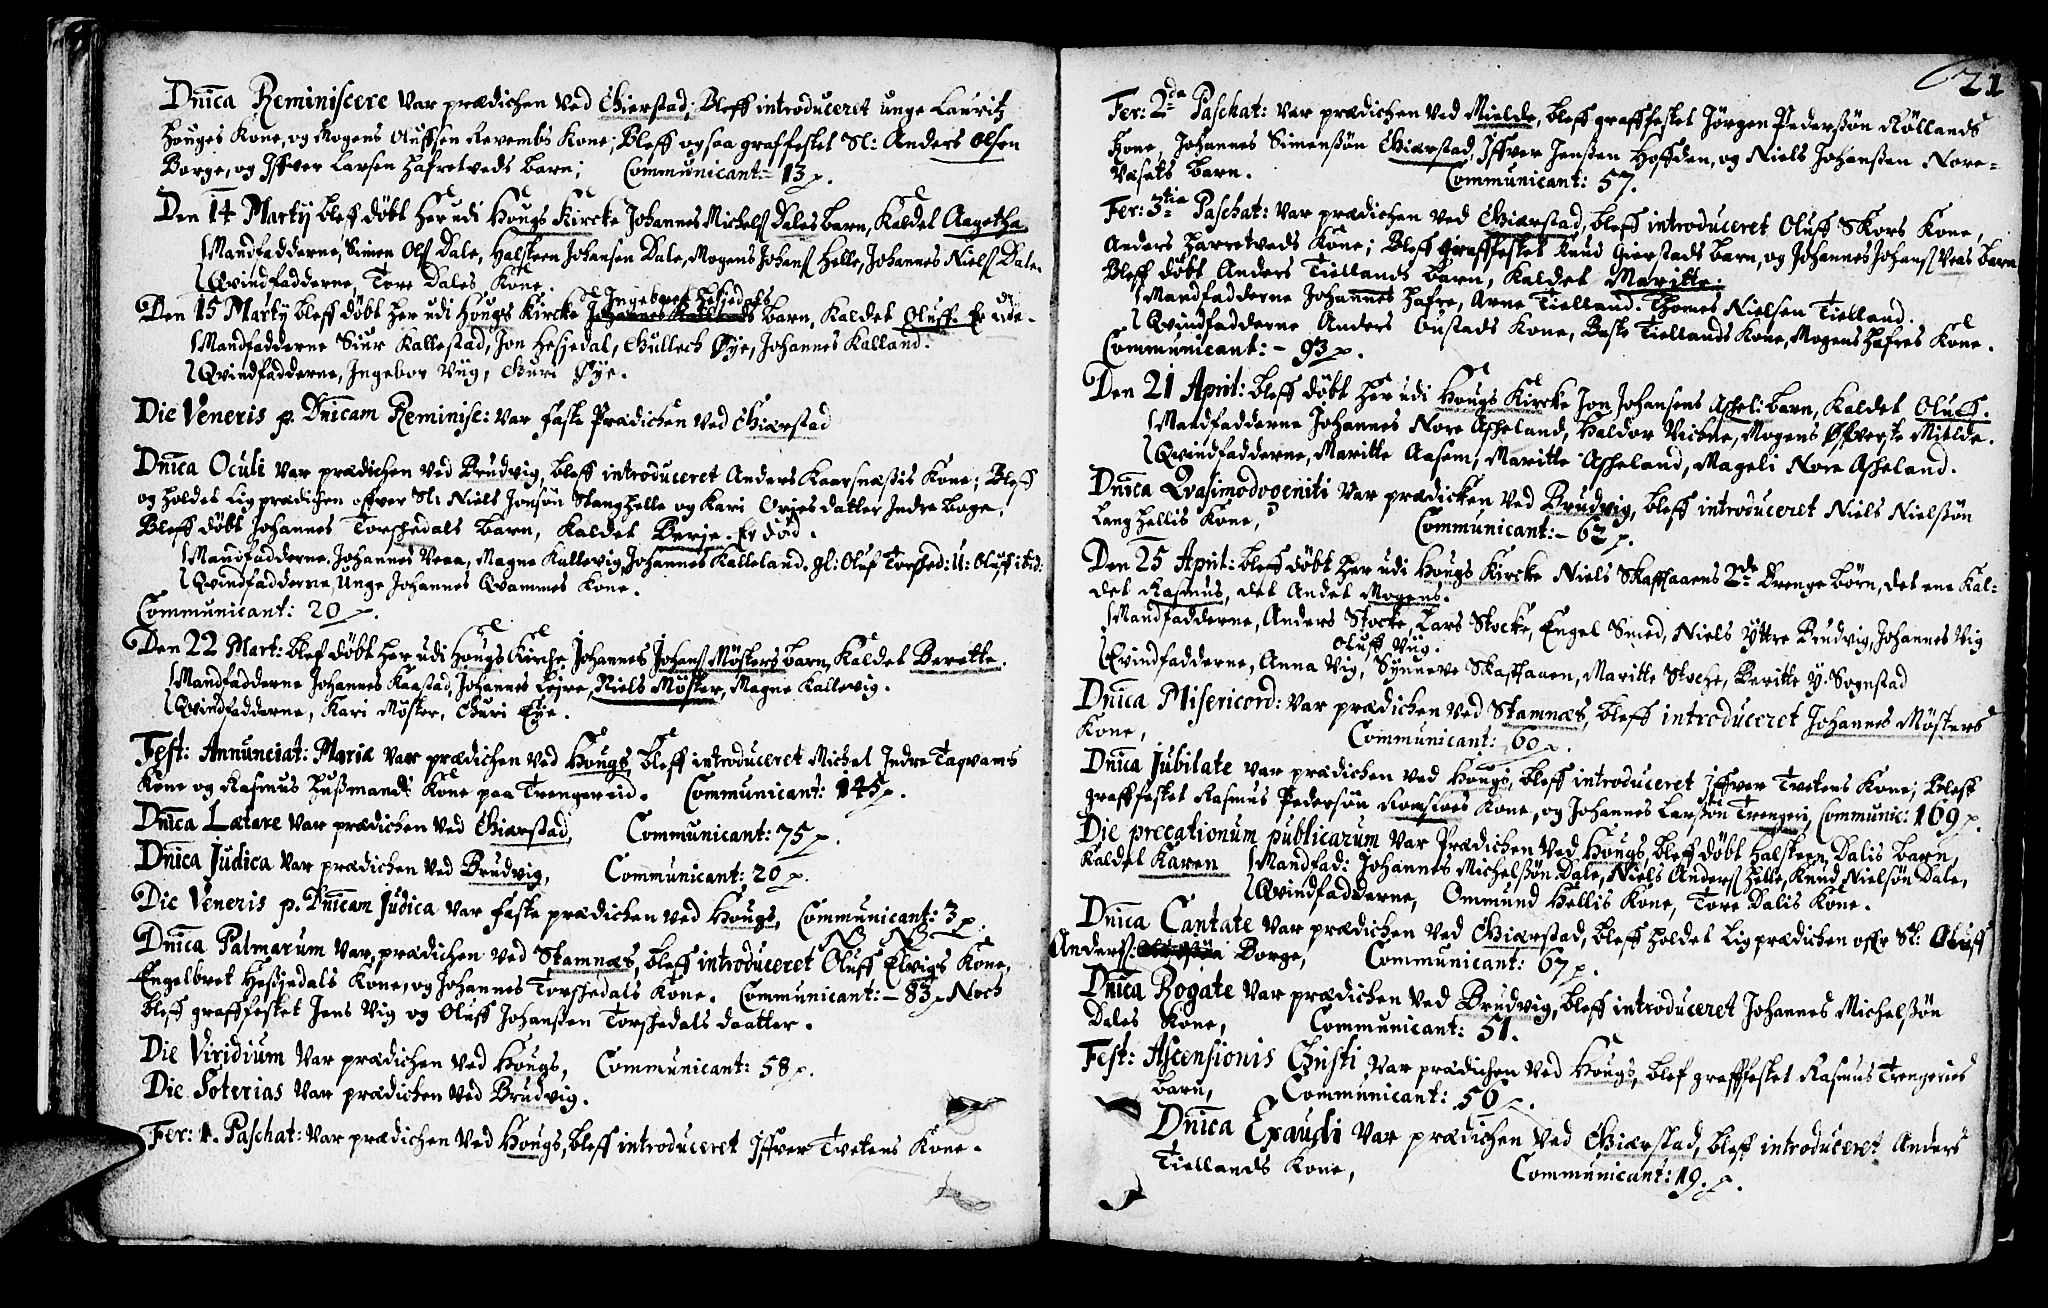 Dnica Reminiscere var prædichen ved Gierstad; Bleff introduceret unge Lauritz
Houges Kone, og Mogens Oluffsen Kone; Bleff ogsaa graffestet Sl: Anders Olsen
Borge, og Iffver Larsen Hafretveds barn; Communicant= 13 p.
Den 14 Martij bleff døbt her udi Hougs Kircke Johannes Michels Dales barn, kaldet Aagetha
Mandfadderne, Simen Ols Dale, Halsteen Johansen Dale, Mogens Johans Helle, Johannes Niels Dale.
Qvindfadderne, Tore Dales Kone.
Ingebret Hesjedals
Den 15 Martij bleff døbt her udi Hougs Kircke barn, kaldet Oluff. Er død.
Mandfadderne Siur Kallestad, Jon Hesjedal, Gullech Øye, Johannes Kalland.
Qvindfadderne, Ingebor Viig, Guri Øye.
Die Veneris p. Dnicam Reminisc: var faste Prædichen ved Giærstad
Dnica Oculi var prædichen ved Brudvig, bleff introduceret Anders Kaarsnæssis Kone; Bleff
og holdet Lig prædichen offver Sl: Niels Jonsøn Stanghelle og Kari datter Indre boge.
Bleff døbt Johannes Torskedals barn, kaldet Berje. Er død.
Mandfadderne, Johannes Veaa, Magne Kallevig, Johannes Kalleland. gl: Oluf Torsked: U: Oluff ibid:
Qvindfadderne, Unge Johannes Qvammes Kone.
Communicant: 20 p.
Den 22 Mart: blef døbt her udi Hougs Kirche Johannes Johans Møsters barn, kaldet Berette.
Mandfadderne Johannes Kaastad, Johannes Lejre, Niels Møster, Magne Kallevig.
Qvindfadderne, Kari Møster, Guri Eye.
Fest: Annunciat: Mariæ var prædichen ved Hougs, bleff introduceret Michel Indre Taqvams
Kone og Rasmus Hussmands Kone paa Trengereid. Communicant: 145 p.
Dnica Lætare var prædichen ved Giærstad, Communicant: 75 p.
Dnica Judica var prædichen ved Brudvig, Communicant: 20 p.
Die Veneris p. Dnicam Judica var faste prædichen ved Hougs, Communicant: 3 p.
NB NB
Dnica Palmarum var prædichen ved Stamnæs, bleff introduceret Oluff Elvigs Kone,
Engelbret Hessjedals Kone, og Johannes Torskedals Kone. Communicant: – 83 p. Noch
bleff graffestet Jens Vig og Oluff Johanssen Torskedals daatter.
Die Viridium var prædichen ved Hougs, Communicant: 58 p.
Die Soterias var prædichen ved Brudvig.
Fer: 1. Paschat: var prædichen ved Hougs, bleff introduceret Iffver Tvetens Kone.
21
Fer: 2da Paschat: var prædichen ved Mielde, bleff graffestet Jørgen Pederssøn Røllands
Kone, Johannes Simenssøn Giærstad, Iffver Jenssen Hoffden, og Niels Johanssen Nore-
Vasets barn. Communicant: 57.
Fer: 3tia Paschat: var prædichen ved Giærstad, bleff introduceret Oluff Skors Kone,
Anders Harretveds Kone; Bleff graffestet Knud Gierstads barn, og Johannes Johans Veas barn
Bleff døbt Anders Tiellands barn, kaldet Maritte.
Mandfadderne Johannes Hafre, Arne Tielland. Thomes Nielsen Tielland.
Qvindfadderne Anders Oustads Kone, Baste Tiellands Kone, Mogens Hafres Kone.
Communicant: – 93 p.
Den 21 April: bleff døbt her udi Hougs Kircke Jon Johansens Asheli barn, kaldet Oluff.
Mandfadderne Johannes Nore Asheland, Haldor Vicbne, Mogens Øfverste Mielde.
Qvindfadderne, Maritte Aasem, Maritte Asheland, Mageli Nore Asheland.
Dnica Qvasimodogeniti var prædicken ved Brudvig, bleff introduceret Niels Nielssøn
Langhellis Kone, Communicant: – 62 p.
Den 25 April: bleff døbt her udi Hougs Kircke Niels Skafthaarns 2de Drenge børn, det ene kal-
det Rasmus, det Andet Mogens.
Mandfadderne, Anders Stocke, Lars Stocke, Engel Smed, Niels Yttre Brudvig, Johannes Vig
Oluff Viig.
Qvindfadderne, Anna Vig, Synneve Skafthauen, Maritte Stoche, Beritte Y. Sognstad
Dnica Misericord: var prædichen ved Stamnæs, bleff introduceret Johannes Møsters
Kone, Communicant: 60 p.
Dnica Jubilate var prædichen ved Hougs, bleff introduceret Iffver Tvetens Kone; Bleff
graffestet Rasmus Pedersøn Romsloes Kone, og Johannes Larssøn Trengeri, Communic: 169 p.
Die precationum publicarum var Prædichen ved Hougs, bleff døbt Halsteen Dalis barn,
kaldet Karen Mandfad: Johannes Michelssøn Dale, Niels Anders Helle, Knud Nielsøn Dale,
Qvindfadderne, Ommund Hellis Kone, Tore Dalis Kone.
Dnica Cantate var prædichen ved Giærstad, bleff holdet Lig prædichen offr Sl: Oluff
Anders: Borge, Communicant: 67 p.
Dnica Rogate var prædichen ved Brudvig, bleff introduceret Johannes Michelssøn
Dales Kone, Communicant: 51.
Fest: Ascensionis Christi var prædichen ved Hougs, blef graffestet Rasmus Trengeries
barn, Communicant: 56 p.
Dnica Exaudi var prædichen ved Giærstad, bleff introduceret Anders
Tiellands Kone, Communicant: 19. p.